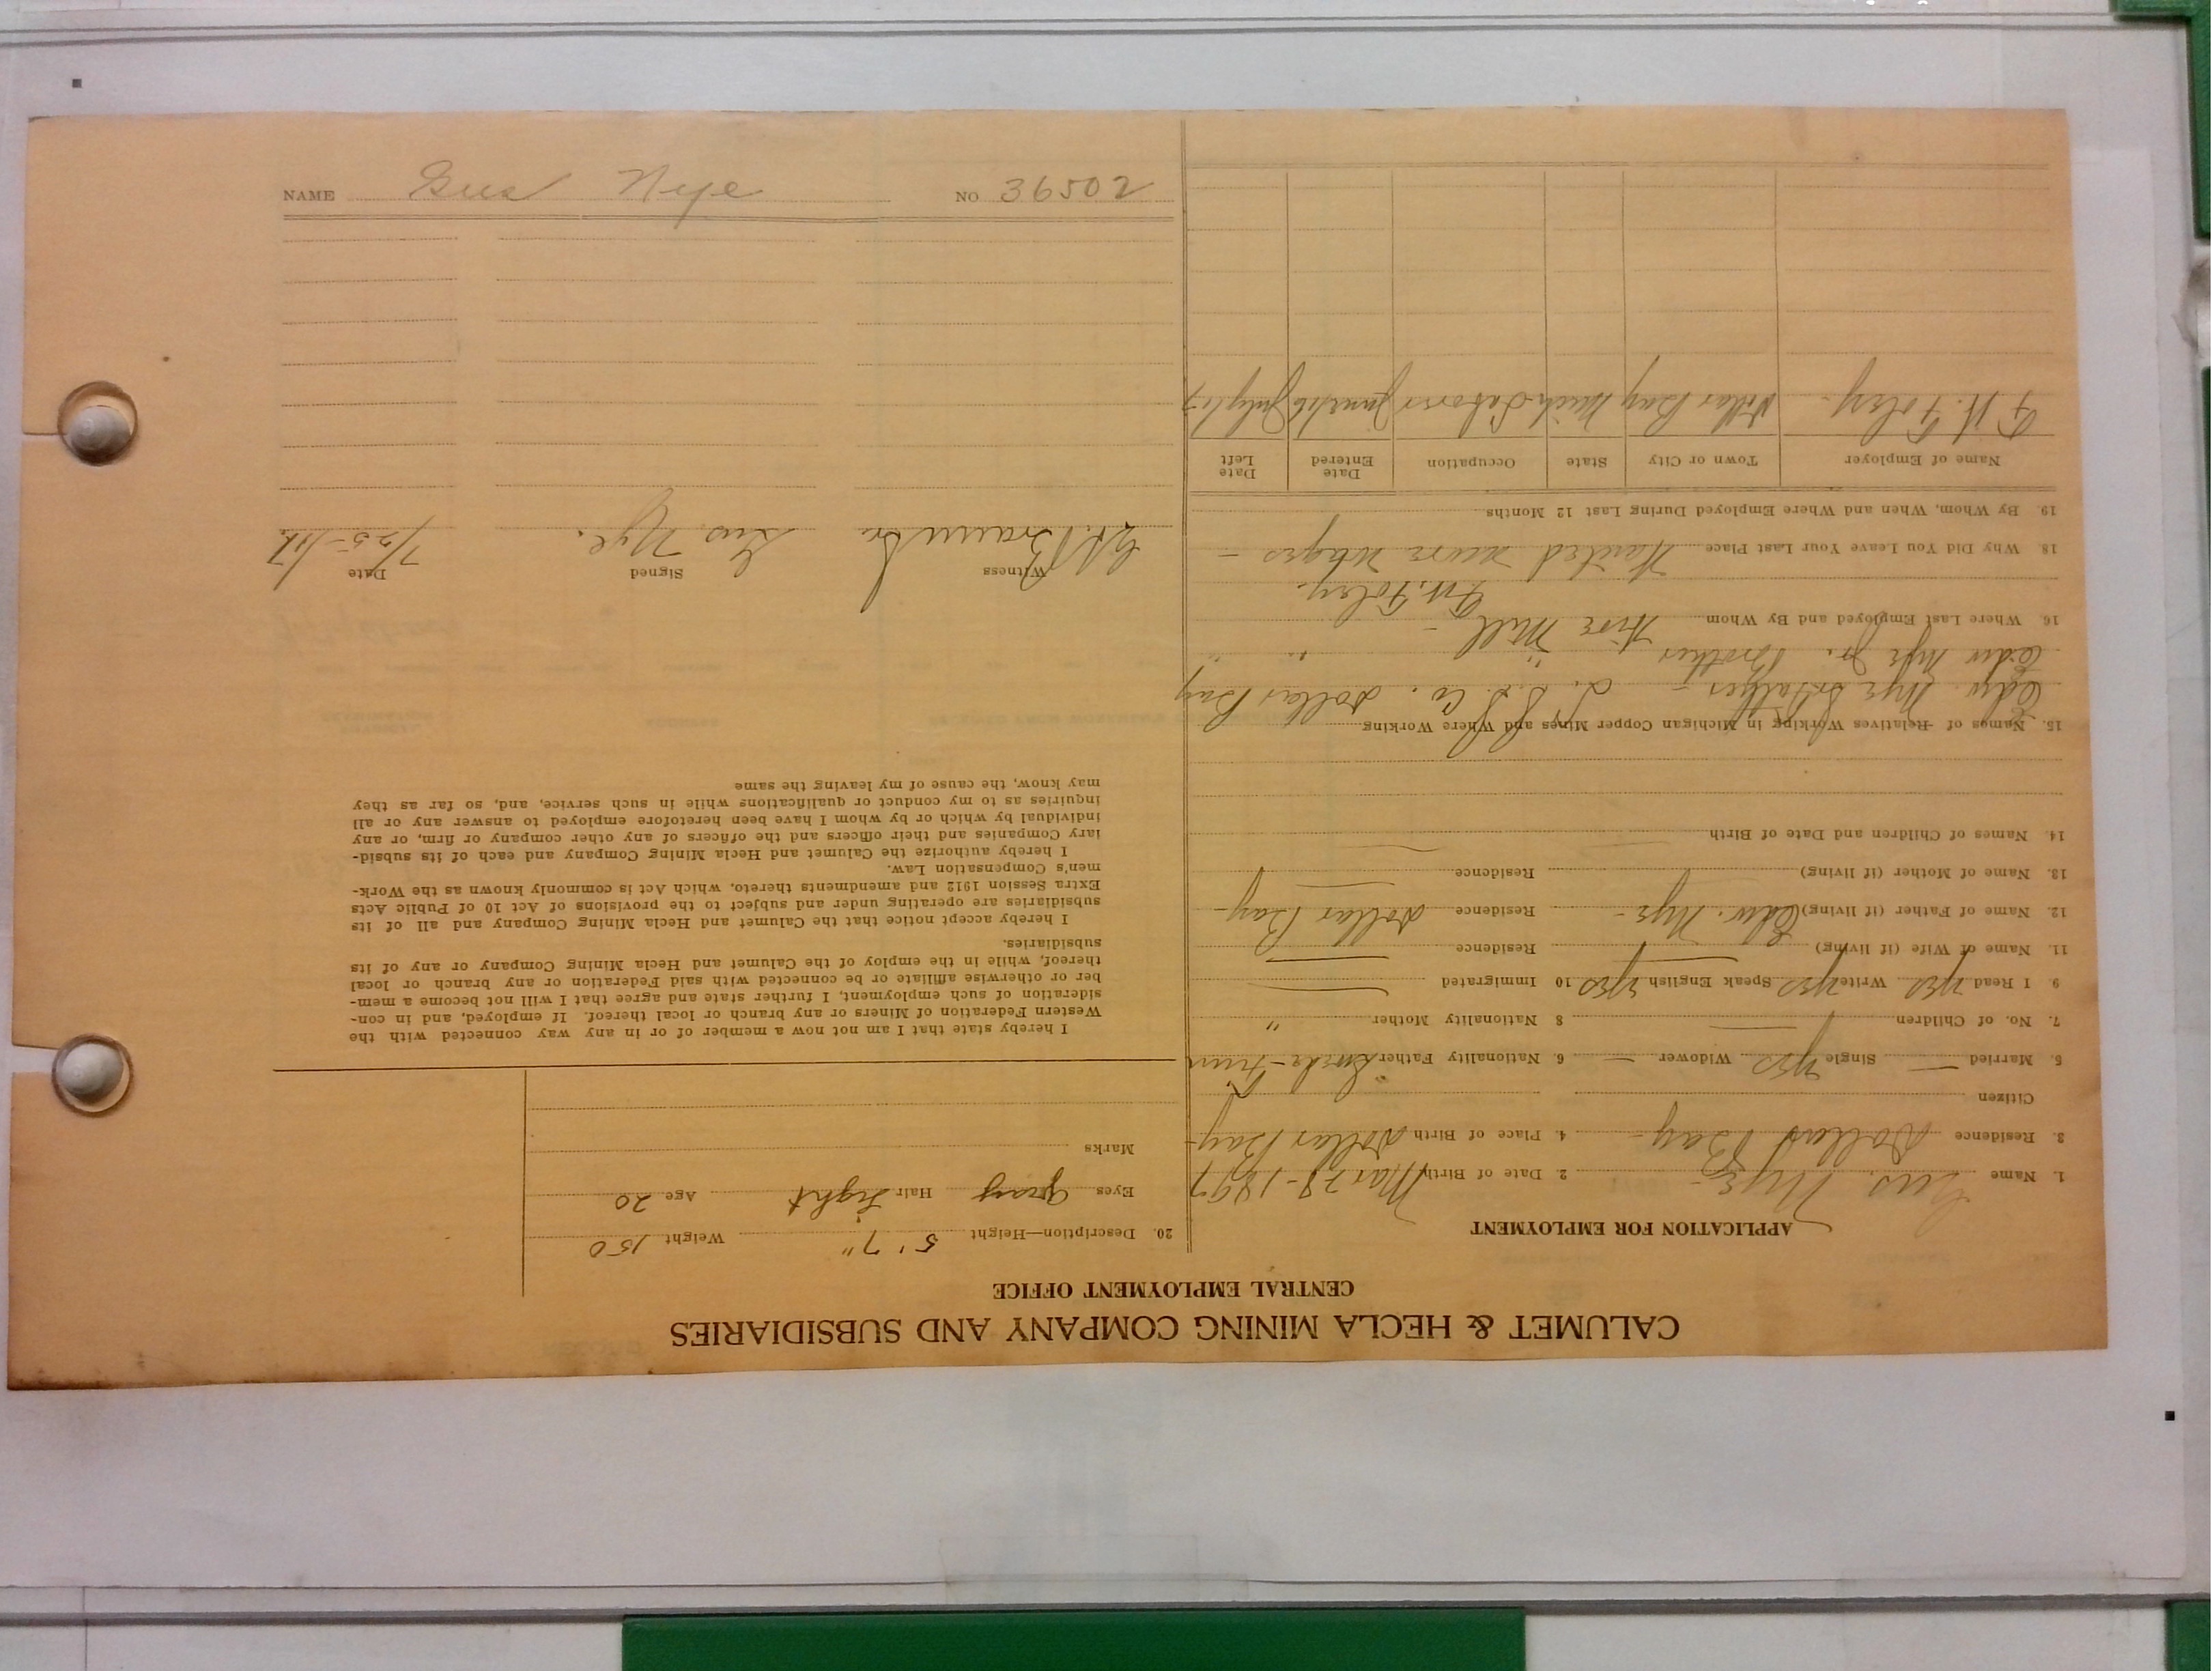 CALUMET & HECLA MINING COMPANY AND SUBSIDIARIES
CENTRAL EMPLOYMENT OFFICE
APPLICATION FOR EMPLOYMENT
1. Name Gus. Nye - 2. Date of Birth Mar 28 - 1897
3. Residence Dollar Bay - 4. Place of Birth Dollar Bay -
Citizen
5. Married — Single yes Widower — 6. Nationality Father Swede - Finn
7. No. of Children — 8 Nationality Mother "
9. I Read yes Write yes Speak English yes 10 Immigrated —
11. Name of Wife (if living) — Residence —
12. Name of Father (if living) Edw. Nye - Residence Dollar Bay -
13. Name of Mother (if living) — Residence —
14. Names of Children and Date of Birth —
15. Names of Relatives Working in Michigan Copper Mines and Where Working
Edw. Nye Sr. Father - L. S. S. Co. Dollar Bay
Edw Nye Jr. Brother " " "
16. Where Last Employed and By Whom Wire Mill -
F. W. Foley.
18. Why Did You Leave Your Last Place Wanted more wages -
19. By Whom, When and Where Employed During Last 12 Months
Name of Employer Town or City State Occupation Date Entered Date Left
F. W. Foley - Dollar Bay Mich Laborer June 1/16 July 1/17
20. Description—Height 5' 7" Weight 150
Eyes Gray Hair Light Age 20
Marks
I hereby state that I am not now a member of or in any way connected with the
Western Federation of Miners or any branch or local thereof. If employed, and in con-
sideration of such employment, I further state and agree that I will not become a mem-
ber or otherwise affiliate or be connected with said Federation or any branch or local
thereof, while in the employ of the Calumet and Hecla Mining Company or any of its
subsidiaries.
I hereby accept notice that the Calumet and Hecla Mining Company and all of its
subsidiaries are operating under and subject to the provisions of Act 10 of Public Acts
Extra Session 1912 and amendments thereto, which Act is commonly known as the Work-
men's Compensation Law.
I hereby authorize the Calumet and Hecla Mining Company and each of its subsid-
iary Companies and their officers and the officers of any other company or firm, or any
individual by which or by whom I have been heretofore employed to answer any or all
inquiries as to my conduct or qualifications while in such service, and, so far as they
may know, the cause of my leaving the same
Witness Signed Date
Gus. Nye. 7/25-/17
NAME Gus Nye NO 36502